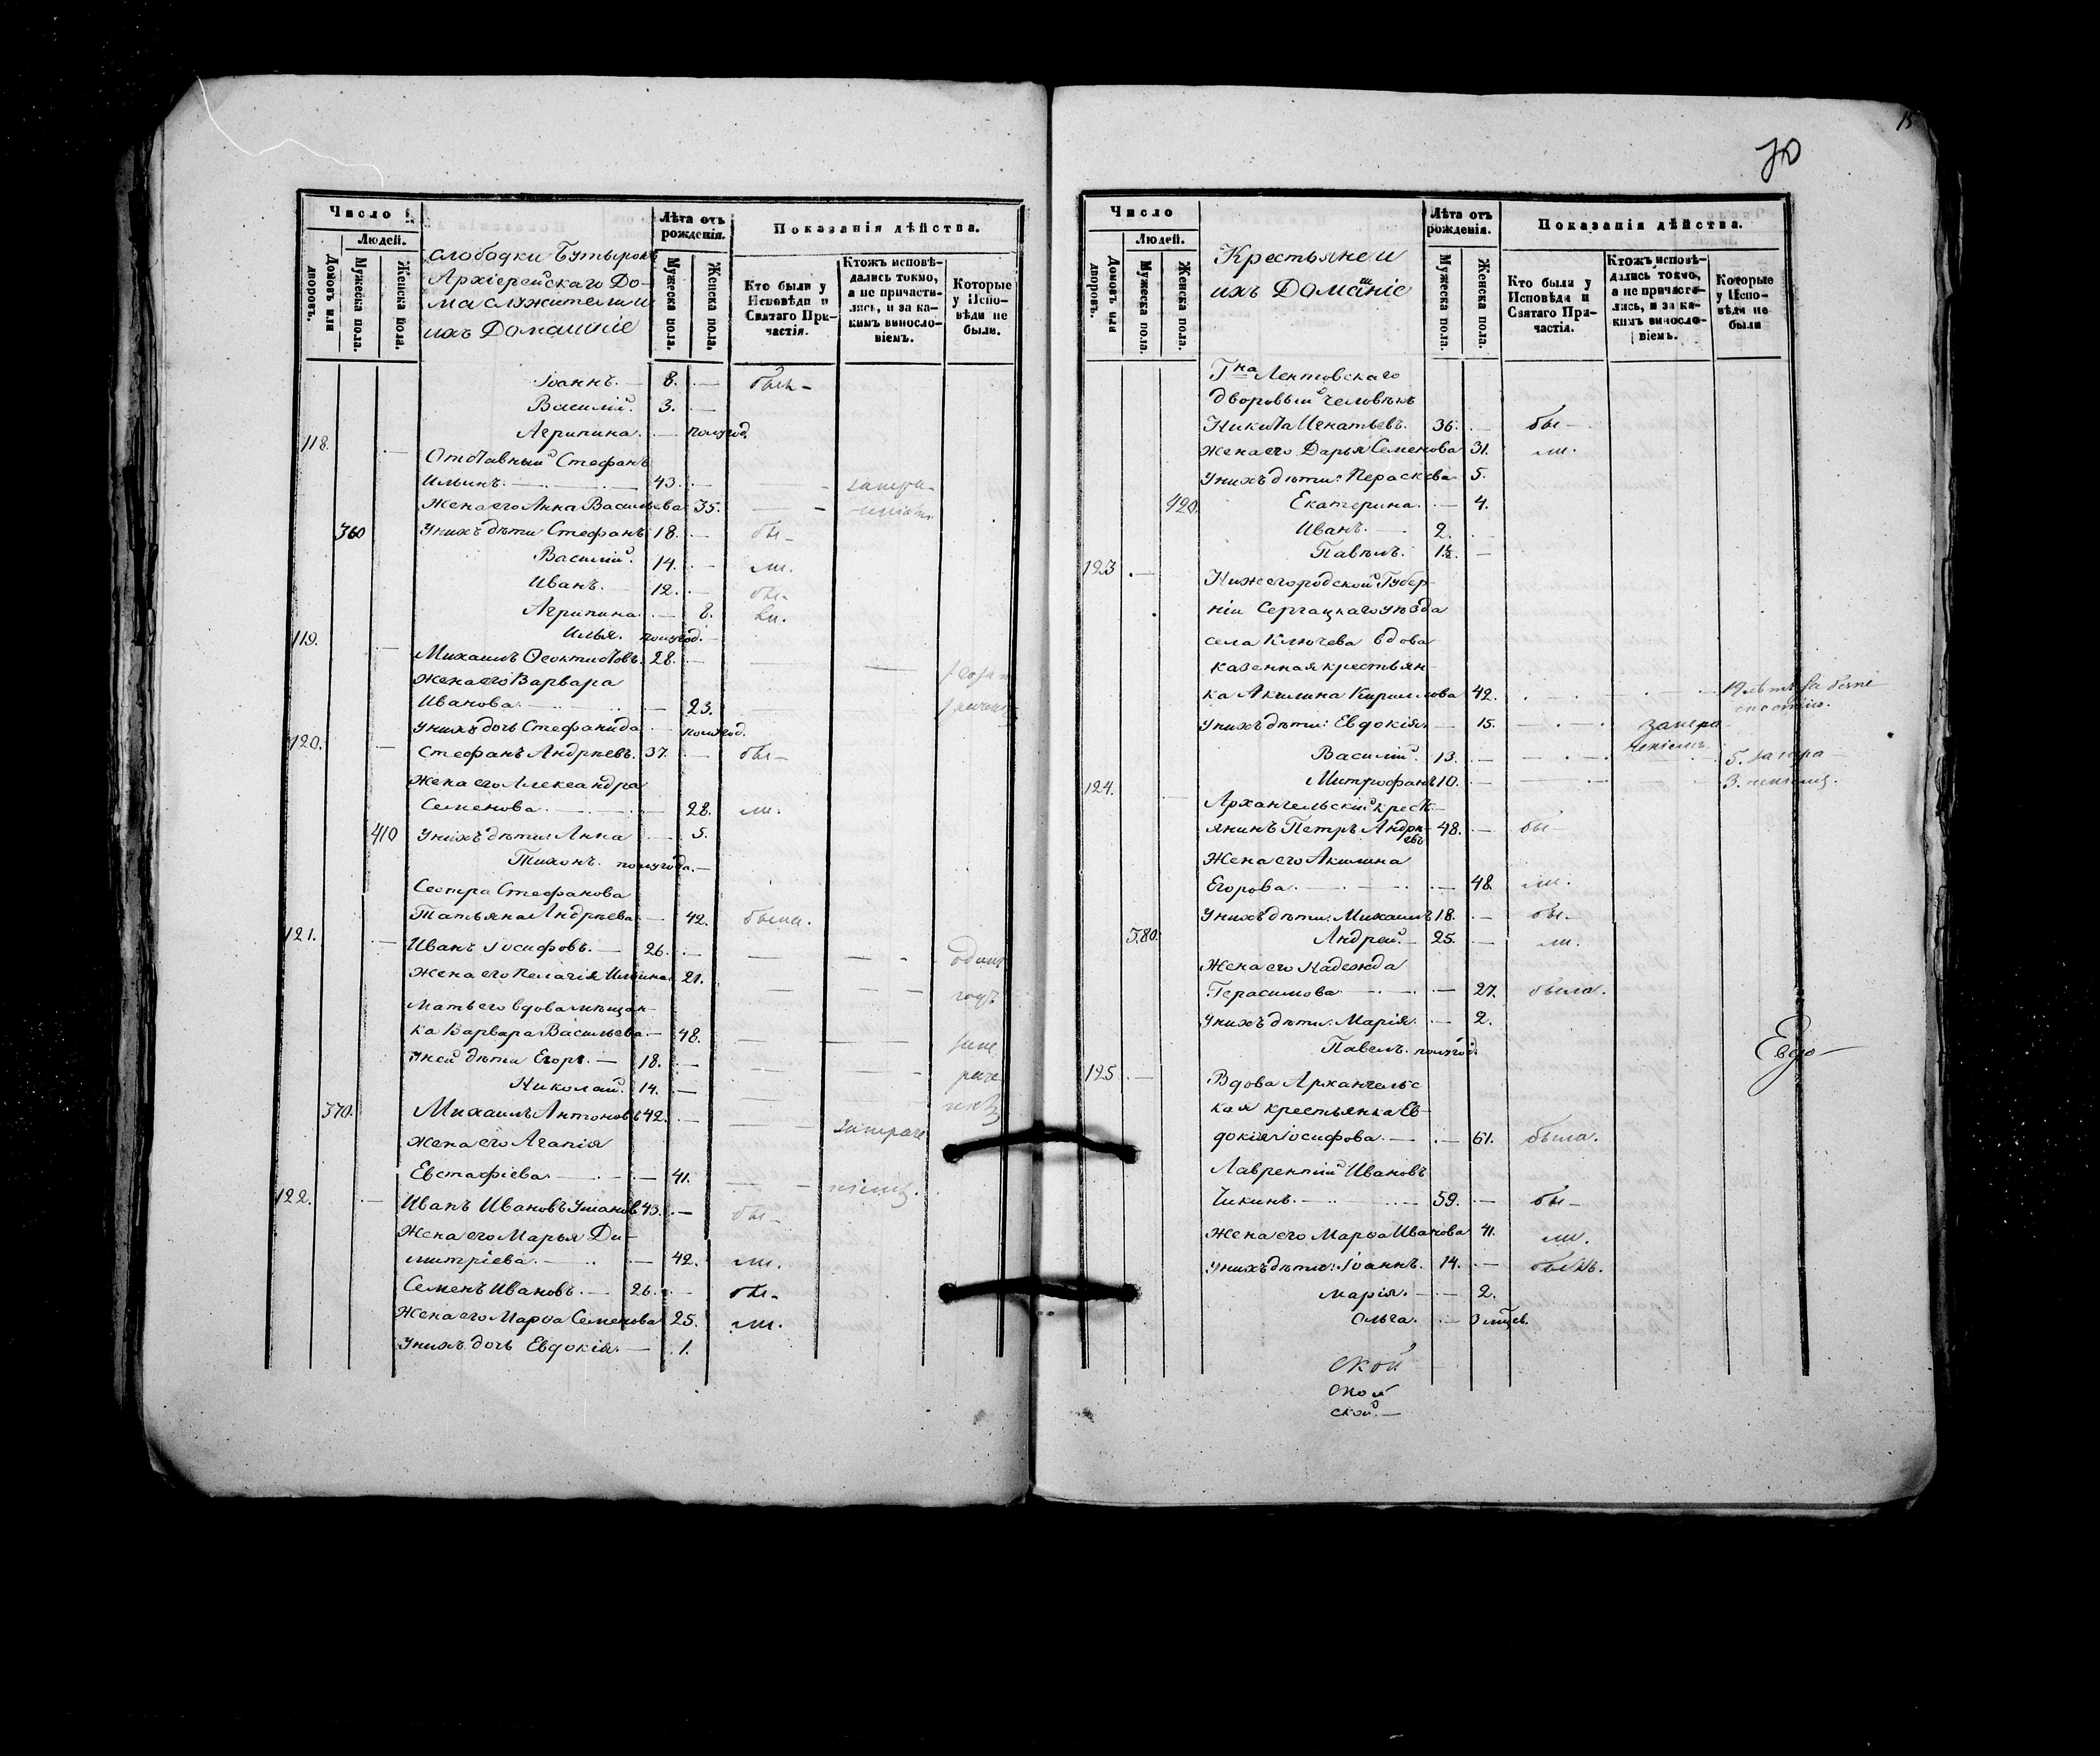 Число
Людей.
Домовъ или дворовъ.
Мужеска пола.
Женска пола.
слободки Бутырокъ
Архіерейскаго До-
ма служители и
ихъ Домашніе
Лѣта отъ рожденія.
Мужеска пола.
Женска пола.
Показанія дѣйства.
Кто были у Исповѣди и Святаго При-частія.
Ктожъ исповѣ-дались токмо, а не причасти-лись, и за ка-кимъ винosло-віемъ.
Которые у Испо-вѣди не были.
Іоаннъ. — 8. — былъ —
Василій. 3. —
Агрипина. — полугод.
118. — Отставный Стефанъ
Ильинъ. — 43. — — запера-
Жена его Анна Васильева 35. — —
360 У нихъ дѣти Стефанъ 18. — бы —
Василій. 14. — ли.
Иванъ. — 12. — бы —
Агрипина. — 8. ли.
Илья. полугод. —
119. — Михаилъ Ѳеоктистовъ. 28. — — —
Жена его Варвара
Иванова. — 23. —
У нихъ дочь Стефанида — полугод.
120. — Стефанъ Андреевъ. 37. — бы —
Жена его Александра
Семенова. — 28. ли.
410 У нихъ дѣти: Анна — 5.
Тихонъ. полугода. —
Сестра Стефанова
Татьяна Андреева. — 42. была.
121. — Иванъ Іосифовъ. — 26. — — — одинъ
Жена его Пелагія Ильина. 21. — — годъ
Мать его вдова мѣщан-
ка Варвара Васильева. — 48. — —
У ней дѣти Егоръ. — 18. — — —
Николай. 14. — — —
370. Михаилъ Антоновъ 42. — — запераче
Жена его Агапія
Евстафіева. — 41. — — ніемъ.
122. — Иванъ Ивановъ Ушаковъ 43. — бы —
Жена его Марья Ди-
митріева. — 42. ли.
Семенъ Ивановъ. — 26. — бы —
Жена его Марѳа Семенова 25. ли.
У нихъ дочь Евдокія. — 1.
15
70
Число
Людей.
Домовъ или дворовъ.
Мужеска пола.
Женска пола.
Крестьяне и
ихъ Домашніе
Лѣта отъ рожденія.
Мужеска пола.
Женска пола.
Показанія дѣйства.
Кто были у Исповѣди и Святаго При-частія.
Ктожъ исповѣ-дались токмо, а не причасти-лись, и за ка-кимъ винosло-віемъ.
Которые у Испо-вѣди не были
Гна Лентовскаго
дворовый человѣкъ
Никита Игнатьевъ. 36. — бы —
Жена его Дарья Семенова 31. ли.
У нихъ дѣти: Пераскева 5.
420. Екатерина. — 4.
Иванъ. — 2. —
Павелъ. 1½. —
123 — Нижегородской Губер-
ніи Сергацкаго уѣзда
села Ключева вдова
казенная крестьян-
ка Акилина Кирилова 42.
У нихъ дѣти: Евдокія — 15. — запера
Василій. 13. — — ченіемъ
Митрофанъ 10. — —
124. — Архангельскій крест-
янинъ Петръ Андре-
евъ 48. — бы —
Жена его Акилина
Егорова. — 48. ли.
У нихъ дѣти: Михаилъ 18. — бы —
380. Андрей. — 25. — ли.
Жена его Надежда
Герасимова — 27. была.
У нихъ дѣти: Марія. — 2.
Павелъ. полугод.
Евдо —
125 — Вдова Архангельс
кая крестьянка Ев-
докія Іосифова. — 61. была.
Лаврентій Ивановъ
Чикинъ. — 59. — бы —
Жена его Марѳа Иванова 41. ли.
У нихъ дѣти: Іоаннъ. 14. — былъ.
Марія. — 2.
Ольга. — 3 мѣсѣв.
ской
ской
ской —